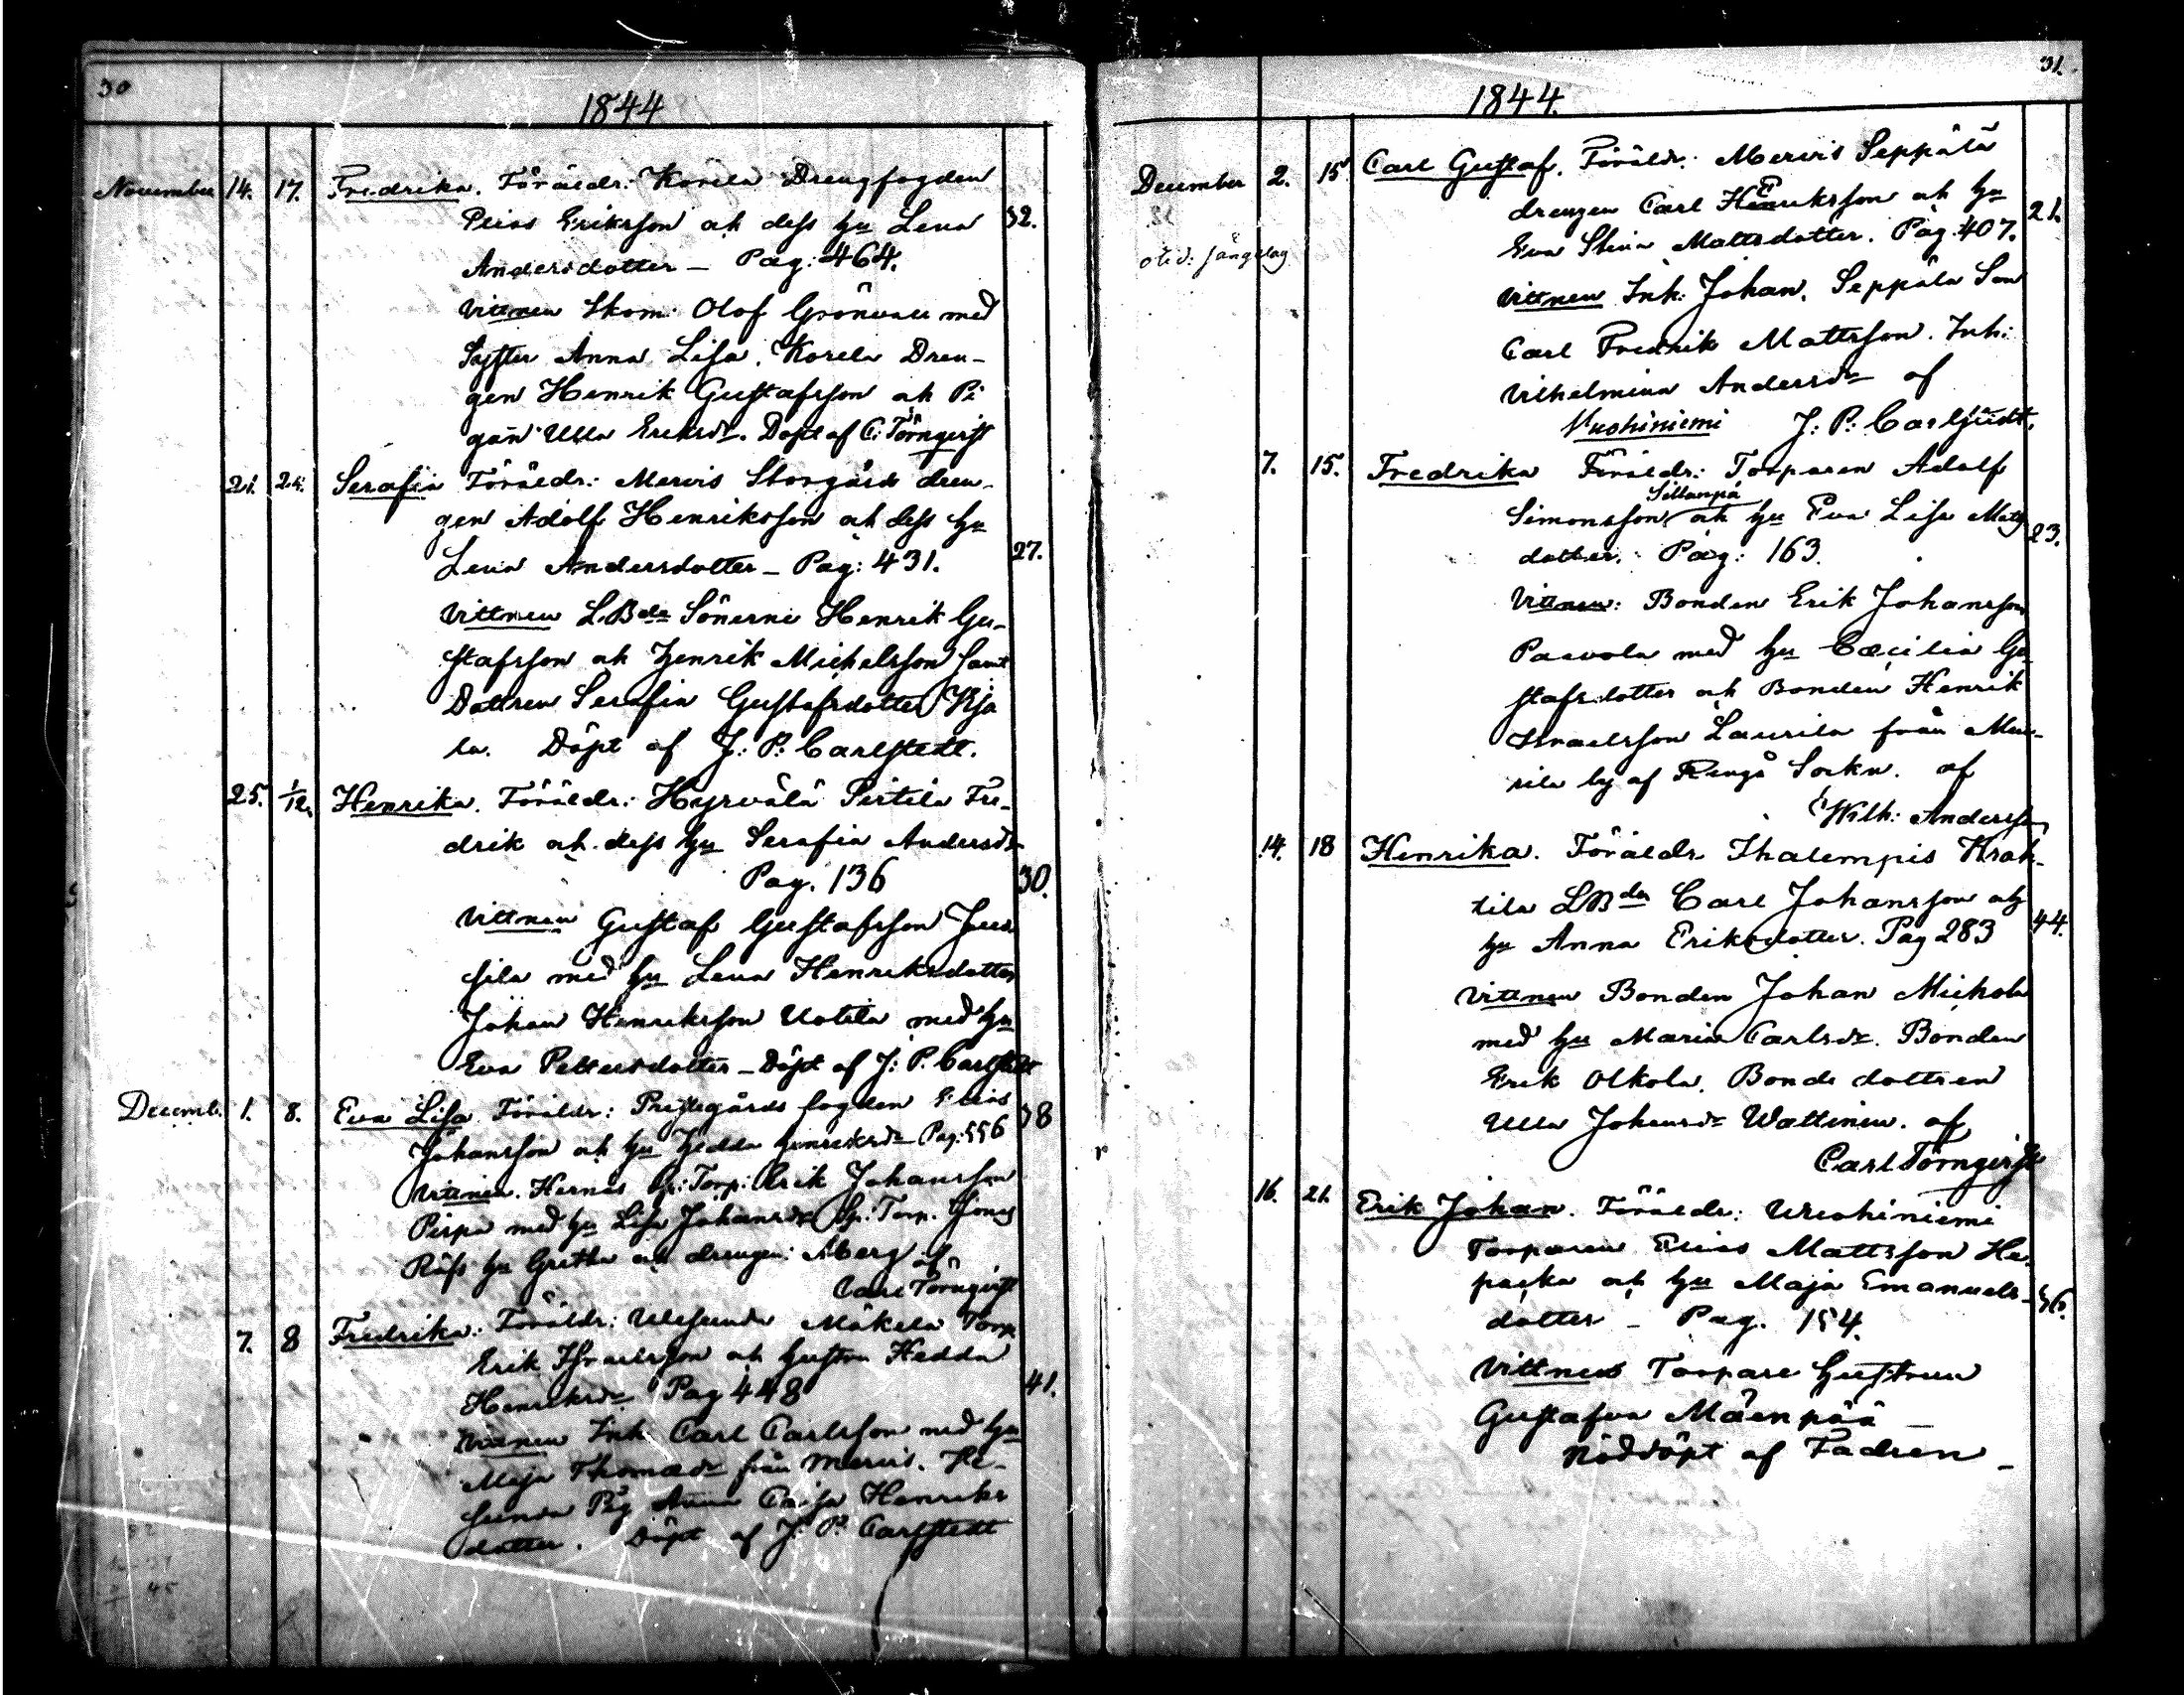 30
1844
November 14. 17. Fredrika. Föräldr: Korela Drengfogden
Elias Eriksson och dess hu Lena 32.
Andersdotter — Pag: 464.
Vittnen Skom: Olof Grönvall med
Syster Anna Lisa. Korela Dren-
gen Henrik Gustafsson och Pi
gan Ulla Eriksdr. Döpt af C. Törnqvist
21. 24. Serafia Föräldr: Mervis Storgårds dren-
gen Adolf Henriksson och dess hu
Lena Andersdotter — Pag: 431. 27.
Vittnen LBde Sönerne Henrik Gu-
stafsson och Henrik Michelsson samt
Dottren Serafia Gustafsdotter
la. Döpt af J: P. Carlstedt.
25. 1/12. Henrika. Föräldr: Hyrvälä Pertila Fre-
drik och dess hu Serafia Andersdr
Pag. 136 30.
Vittnen Gustaf Gustafsson Jus
sila med hu Lena Henriksdotter
Johan Henriksson Uotila med hu
Eva Pettersdotter — Döpt af J: P. Carlstedt
Decemb. 1. 8. Eva Lisa. Föräldr: Prestgårds fogden Elias 38
Johansson och hu Hedda Henriksdr Pag: 556
Vittnen. Torp: Erik Johansson
Pirpa med hu Lisa Johansdr Torp.
hu Gretha och drengen Åberg af
Carl Törnqvist
7. 8 Fredrika. Föräldr: Mäkelä Torp
Erik Israelsson och hustru Hedda
Henriksdr Pag 448 41.
Vittnen Inh. Carl Carlsson med hu
Maja Thomasdr från Mervis. He-
Pig Anna Caisa Henriks
dotter. Döpt af J: P. Carlstedt
31.
1844.
December 2. 15. Carl Gustaf. Föräldr: Mervis Seppälä
drengen Carl Henriksson och hu 21.
Eva Stina Mattsdotter. Pag. 407.
Vittnen Inh: Johan. Seppälä Son
Carl Fredrik Mattsson. Inh:
Vilhelmina Andersdr af
Vuohiniemi J: P: Carlstedt.
7. 15. Fredrika Föräldr: Torparen Adolf
Sillanpä
Simonsson och hu Eva Lisa Mats 23.
dotter. Pag: 163.
Vittnen: Bonden Erik Johansson
Paavola med hu Cæcilia Gu
stafsdotter och Bonden Henrik
Israelsson Laurila från
rila by af Rengå Sockn. af
Wilh: Andersson
14. 18 Henrika. Föräldr. Ihalempis Krak-
tila LBdn Carl Johansson och
hu Anna Eriksdotter. Pag 283 44.
Vittnen Bonden Johan Mickola
med hu Maria Carlsdr. Bonden
Erik Olkola. Bonde dottren
Ulla Johansdr Wattinen. af
Carl Törnqvist
16. 21. Erik Johan. Föräldr: Wuohiniemi
Torparen Elias Mattsson He-
packa och hu Maja Emanuels- 36.
dotter — Pag. 154.
Vittnes Torpare hustrun
Gustafva Mäenpää —
Nöddöpt af Fadren —